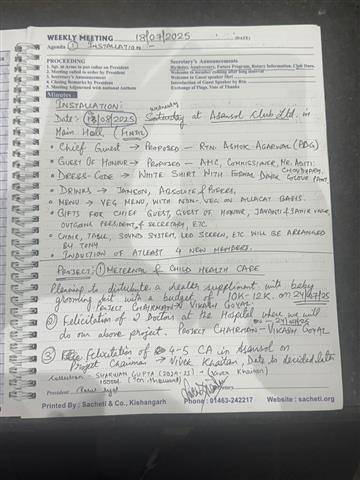 WEEKLY MEETING 18/07/2025 (DATE)
Agenda ① INSTALLATION -
PROCEEDING
Secretary's Announcements
1. Sgt. at Arms to put collar on President
Birthday, Anniversary, Future Program, Rotary Information, Club Dues.
2. Meeting called to order by President
Welcome to member coming after long interval
3. Secretary's Announcement
Welcome to Guest speaker
4. Closing Remarks by President
Introduction of Guest Speaker by Rtn
5. Meeting Adjourned with national Anthem
Exchange of Flags, Vote of Thanks
Minutes
INSTALLATION:
Date:- 13/08/2025 Wednesday Saturday at Asansol Club Ltd. in
Main Hall (FINAL)
• CHIEF GUEST → PROPOSED - RTN. ASHOK AGARWAL (PDG)
• GUEST OF HONOUR → PROPOSED - AMC, COMMISSIONER, MR. ADITI CHOWDHARY
• DRESS-CODE → WHITE SHIRT WITH FORMAL DARK COLOUR PANT.
• DRINKS → JAMSON, ABSOLUTE &
• MENU → VEG MENU, WITH NON-VEG ON BASIS.
• GIFTS FOR CHIEF GUEST, GUEST OF HONOUR, JAYANTI &
OUTGOING PRESIDENT & SECRETARY, ETC.
• CHAIR, TABLE, SOUND SYSTEM, LED SCREEN, ETC WILL BE ARRANGED
BY TONY
• INDUCTION OF ATLEAST 4 NEW MEMBERS.
PROJECT: ① METERNAL & CHILD HEALTH CARE
Planning to distribute a health supplement with baby
grooming kit with a budget of 10K-12K. on 24/07/25
PROJECT CHAIRMAN → VIKASH GOYAL
② Felicitation of 2 Doctors at the Hospital where we will
do our above project. PROJECT CHAIRMAN - VIKASH GOYAL → 24/07/25
③ Felicitation of 4-5 CA in Asansol on
Project Chairman → Vivek Khaitan, Date to decided later
SHARWAN GUPTA (2024-25) - (Vivek Khaitan)
President
Secretary
Printed By : Sacheti & Co., Kishangarh Phone : 01463-242217 Website : sacheti.org